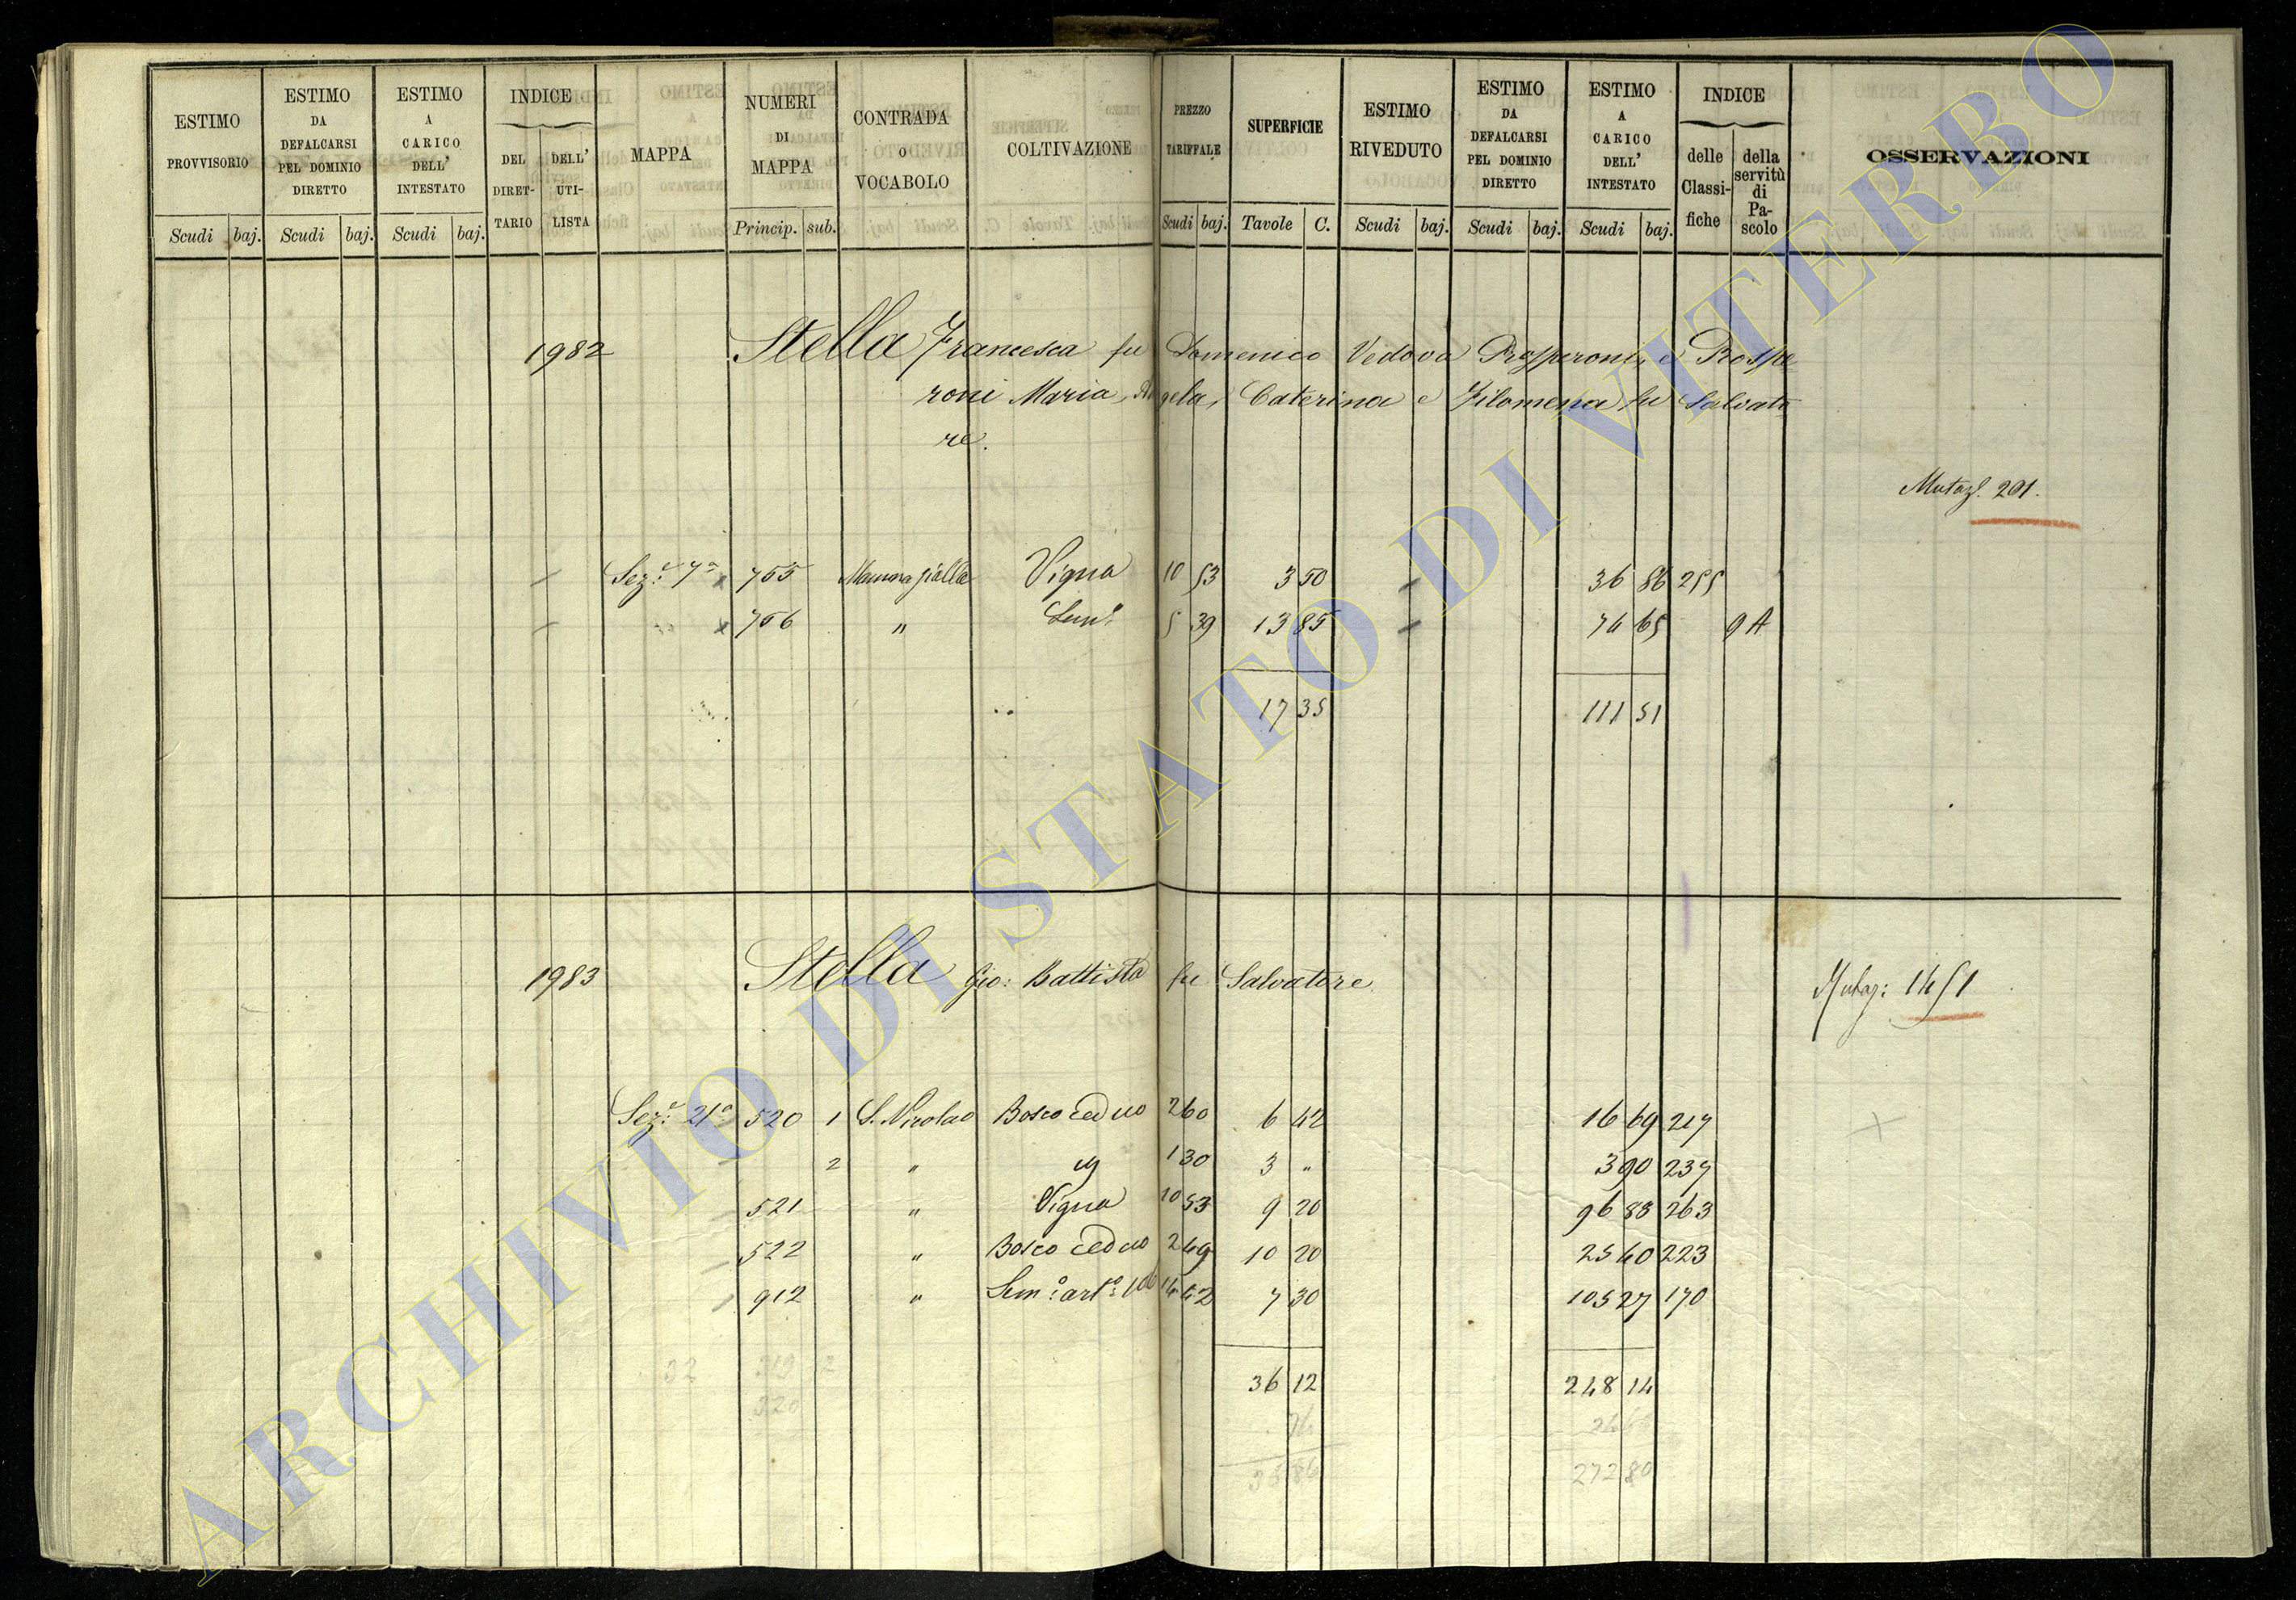 ESTIMO PROVVISORIO Scudi baj.
ESTIMO DA DEFALCARSI PEL DOMINIO DIRETTO Scudi baj.
ESTIMO A CARICO DELL' INTESTATO Scudi baj.
INDICE DEL DIRET- TARIO DELL' UTI- LISTA
MAPPA
NUMERI DI MAPPA Princip. sub.
CONTRADA O VOCABOLO
COLTIVAZIONE
PREZZO TARIFFALE Scudi baj.
SUPERFICIE Tavole C.
ESTIMO RIVEDUTO Scudi baj.
ESTIMO DA DEFALCARSI PEL DOMINIO DIRETTO Scudi baj.
ESTIMO A CARICO DELL' INTESTATO Scudi baj.
INDICE delle Classi- fiche della servitù di Pa- scolo
OSSERVAZIONI
1982 Stella Francesca fu Domenico Vedova Prosperoni, e Prospe
roni Maria, Angela, Caterina e Filomena fu Salvato
re.
Mutaz. 201.
Sez. 7a 755 Mamma gialla Vigna 10 53 3 50 36 86 255
756 " Sem. 5 39 13 85 74 65 9 A
17 35 111 51
1983 Stella Gio: Battista fu Salvatore
Mutaz: 1451
Sez. 21a 520 1 S. Nicolao Bosco ceduo 2 60 6 42 16 69 217
2 " 1 30 3 " 3 90 237
521 " Vigna 10 53 9 20 96 88 263
522 " Bosco ceduo 2 49 10 20 25 40 223
912 " Sem: art: 14 42 7 30 105 27 170
36 12 248 14
32 319
320
272 80
ARCHIVIO DI STATO DI VITERBO